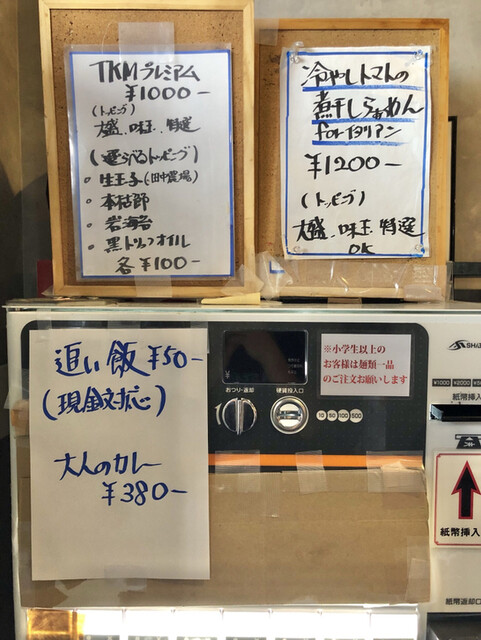 TKMプレミアム
¥1000-
(トッピング)
大盛、味玉、特選
(選べるトッピング)
・生玉子(田中農場)
・本枯節
・岩海苔
・黒トリュフオイル
各¥100-
冷やしトマトの
煮干しらぁめん
forイタリアン
¥1200-
(トッピング)
大盛、味玉、特選
OK
追い飯 ¥50-
(現金対応)
大人のカレー
¥380-
¥
おつり・返却
硬貨投入口
10 50 100 500
※小学生以上の
お客様は麺類一品
のご注文お願いします
¥1000 ¥2000
紙幣挿入
紙幣返却口